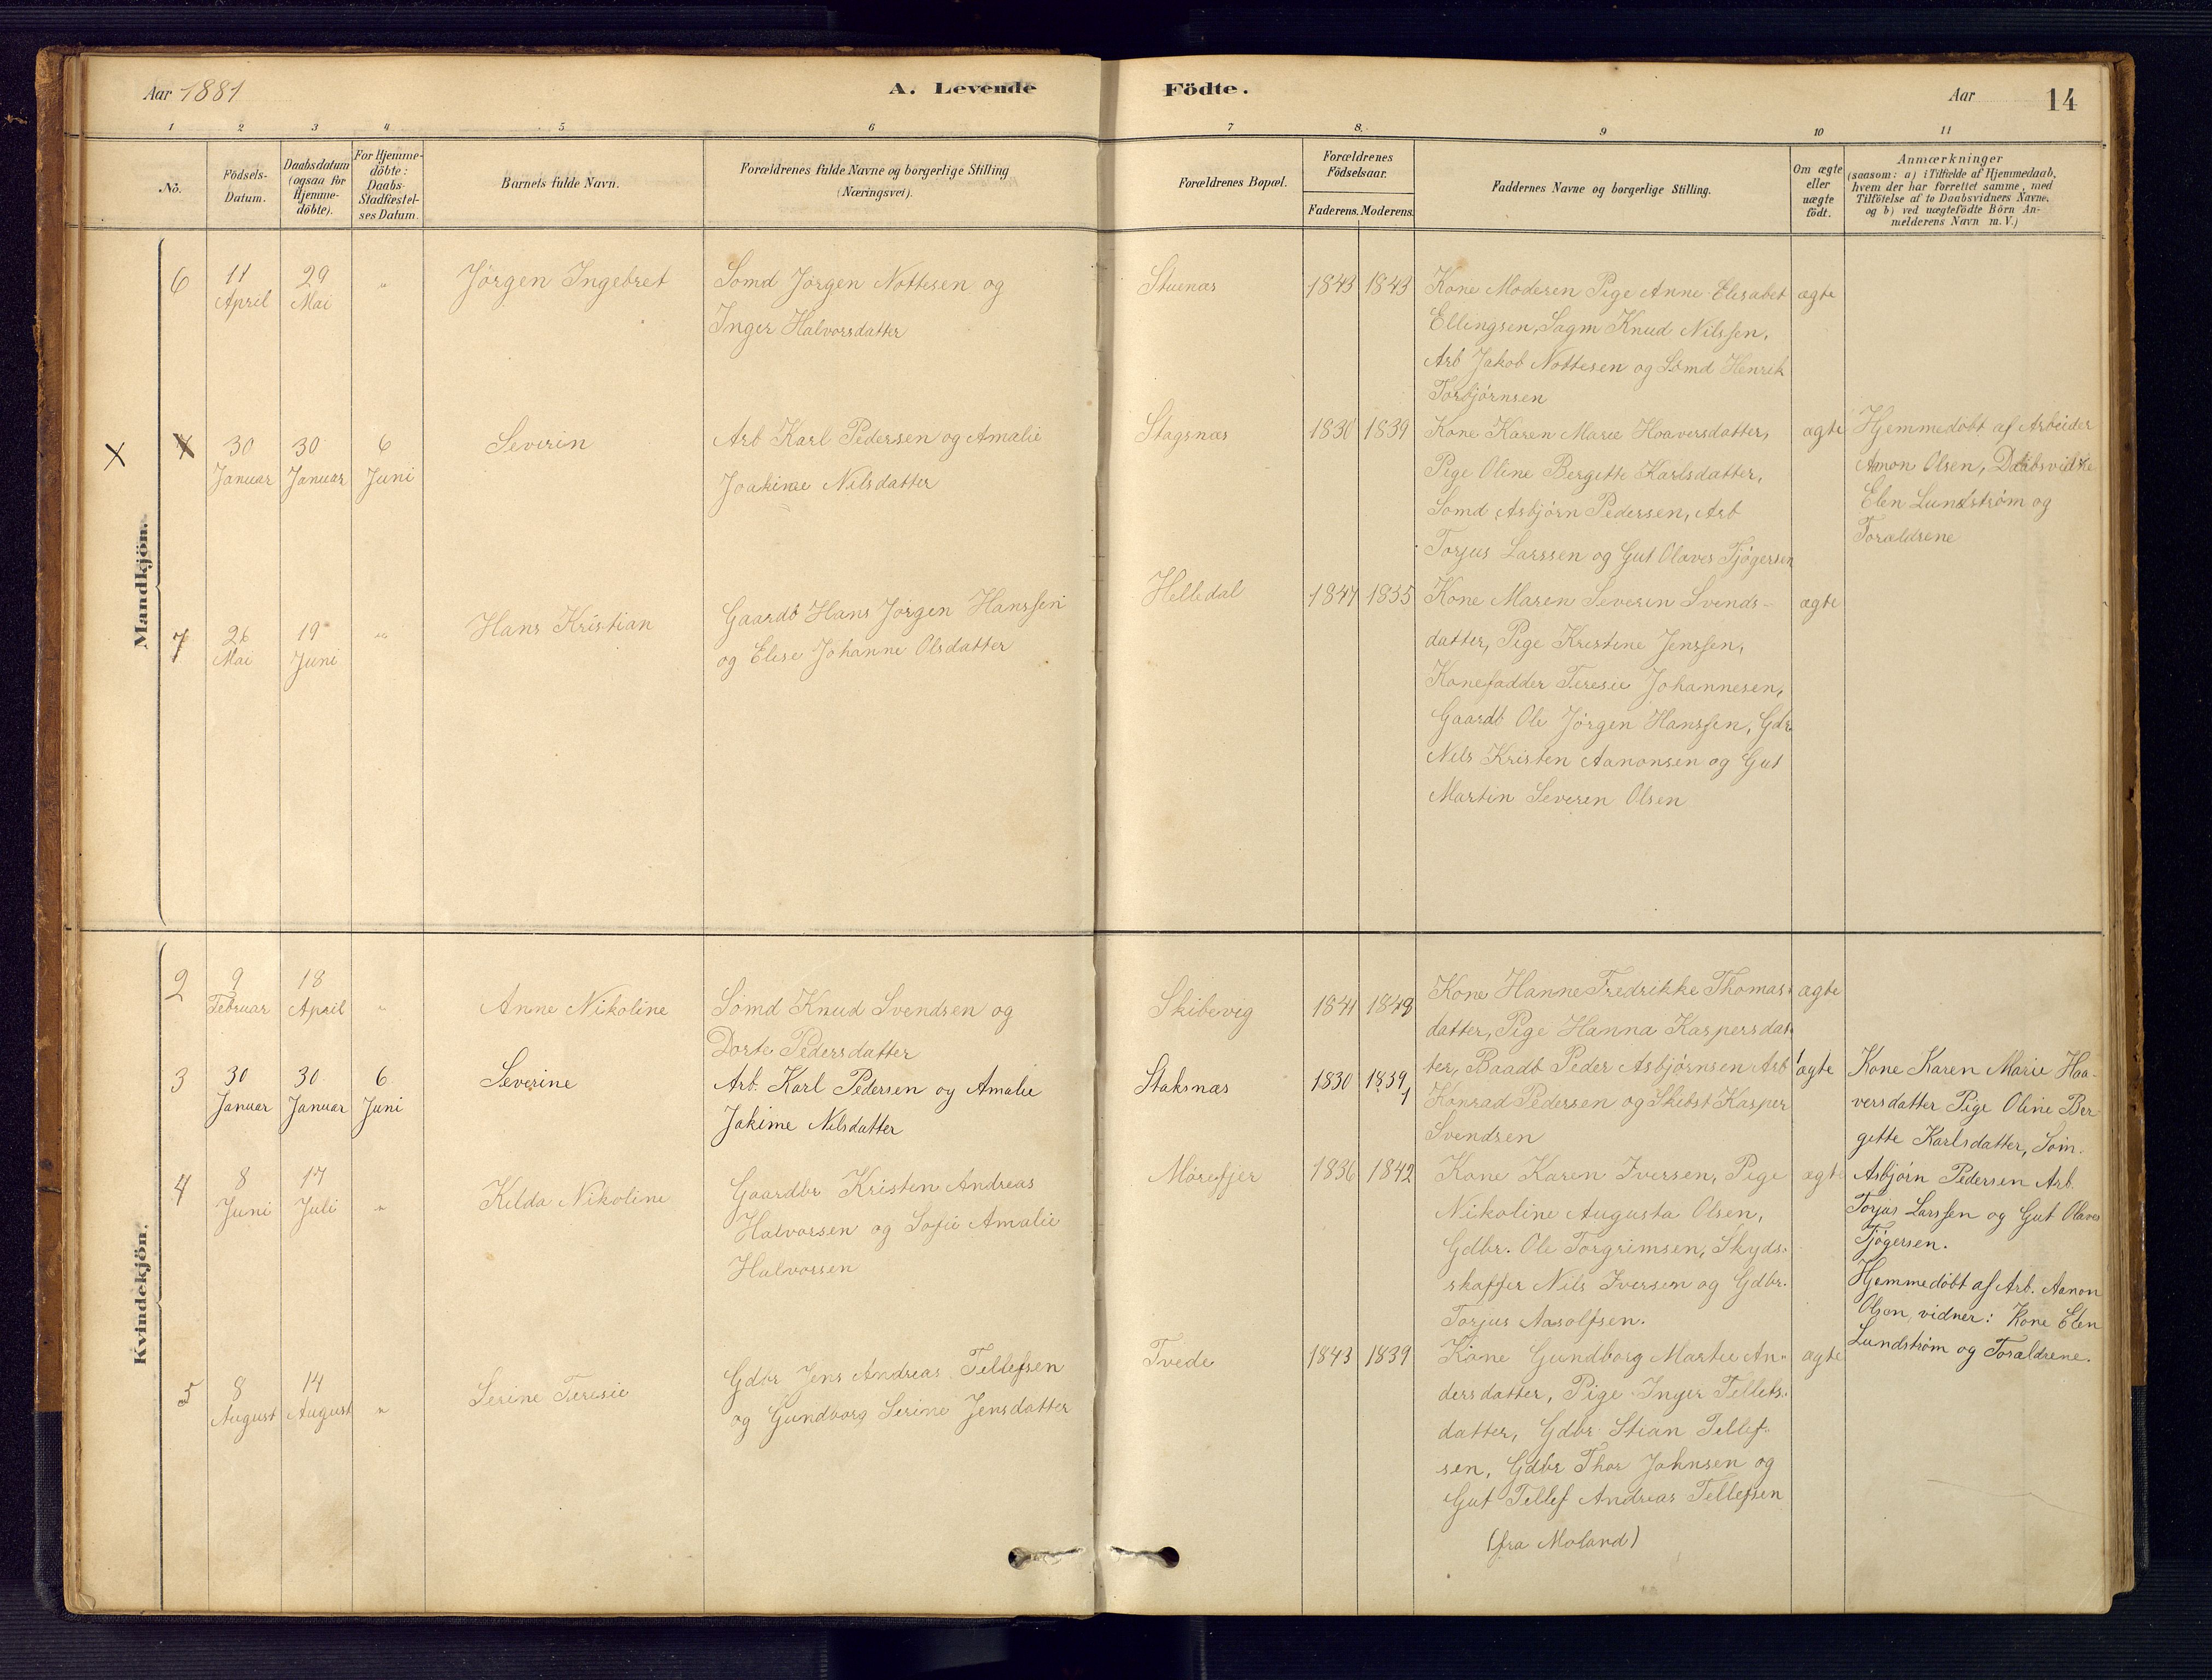 Aar 1881
A. Levende Födte.
Aar 14
1 2 3 4 5 6 7 8. 9 10 11
No.
Födsels-Datum.
Daabsdatum (ogsaa for Hjemme-döbte).
For Hjemme-döbte: Daabs-Stadfæstel-ses Datum.
Barnets fulde Navn.
Forældrenes fulde Navne og borgerlige Stilling (Næringsvei).
Forældrenes Bopæl.
Forældrenes Födselsaar.
Faderens. Moderens.
Faddernes Navne og borgerlige Stilling.
Om ægte eller uægte födt.
Anmærkninger
(saasom: a) i Tilfælde af Hjemmedaab,
hvem der har forrettet samme, med
Tilföielse af to Daabsvidners Navne.
og b) ved uægtefödte Börn An-
melderens Navn m. V.)
Mandkjön.
6
11 April
29 Mai
"
Jörgen Ingebret
Sömd Jörgen Nottesen og
Inger Halvorsdatter
Stuenæs
1843 1843
Kone Moderen Pige Anne Elisabet
Ellingsen, Sagm Knud Nilssen,
Arb Jakob Nottesen og Sömd Henrik
Torbjörnsen
ægte
X
30 Januar
30 Januar
6 Juni
Severin
Arb Karl Pedersen og Amalie
Joakime Nilsdatter
Stagsnæs
1830 1839
Kone Karen Marie Haaversdatter,
Pige Oline Bergitte Karlsdatter,
Sömd Asbjörn Pedersen, Arb
Torjus Larssen og Gut Olaves Tjögersen
ægte
Hjemmedöbt af Arbeider
Amon Olsen, Daabsvidne
Elen Lundström og
Forældrene
7
26 Mai
19 Juni
"
Hans Kristian
Gaardb Hans Jörgen Hanssen
og Elise Johanne Olsdatter
Helledal
1847 1855
Kone Maren Severin Svends-
datter, Pige Kristine Jenssen,
Konefadder Teresie Johannesen,
Gaardb Ole Jörgen Hanssen, Gdb
Nils Kristen Aanonsen og Gut
Martin Severin Olsen
ægte
Kvindekjön.
2
9 Februar
18 April
"
Anne Nikoline
Sömd Knud Svendsen og
Dorte Pedersdatter
Skibevig
1841 1848
Kone Hanne Fredrikke Thomas-
datter, Pige Hanna Kaspersdat
ter, Baadb Peder Asbjörnsen Arb
Konrad Pedersen og Skibst Kasper
Svendsen
ægte
3
30 Januar
30 Januar
6 Juni
Severine
Arb. Karl Pedersen og Amalie
Jakime Nilsdatter
Staksnæs
1830 1839
ægte
Kone Karen Marie Haa-
versdatter Pige Oline Ber
gitte Karlsdatter, Söm.
Asbjörn Pedersen Arb.
Torjus Larssen og Gut Olaves
Tjögersen.
Hjemmedöbt af Arb. Aanon
Olsen, vidner: Kone Elen
Lundström og Forældrene.
4
8 Juni
17 Juli
"
Kilda Nikoline
Gaardbr Kristen Andreas
Halvorsen og Sofie Amalie
Halvorsen
Mörefjer
1836 1842
Kone Karen Iversen, Pige
Nikoline Augusta Olsen,
Gdbr. Ole Torgrimsen, Skyds-
skaffer Nils Iversen og Gdbr.
Torjus Aasolfsen.
ægte
5
8 August
14 August
"
Serine Teresie
Gdbr Jens Andreas Tellefsen
og Gundborg Serine Jensdatter
Tvede
1843 1839
Kone Gundborg Martie An-
dersdatter, Pige Inger Tellefs-
datter, Gdbr Stian Tellef-
sen, Gdbr Thor Johnsen og
Gut Tellef Andreas Tellefsen
(fra Moland)
ægte